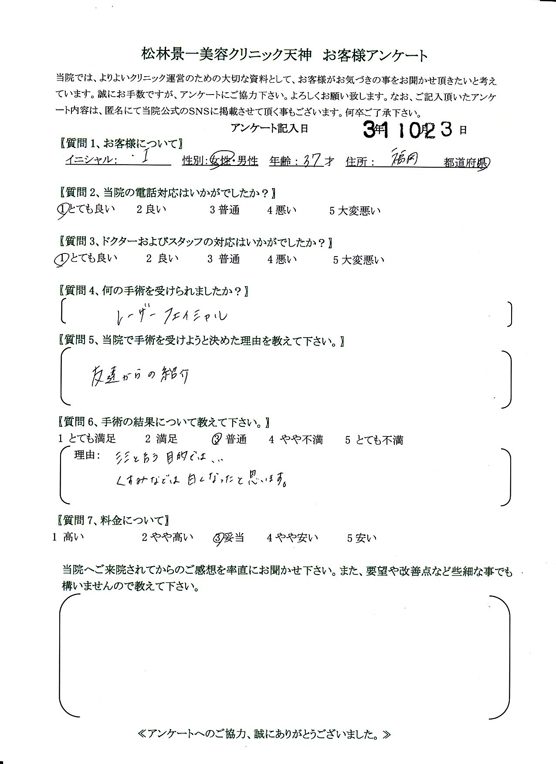 松林景一美容クリニック天神　お客様アンケート
当院では、よりよいクリニック運営のための大切な資料として、お客様がお気づきの事をお聞かせ頂きたいと考え
ています。誠にお手数ですが、アンケートにご協力下さい。よろしくお願い致します。なお、ご記入頂いたアンケ
ート内容は、匿名にて当院公式のSNSに掲載させて頂く事もございます。何卒ご了承下さい。
アンケート記入日　31年10月23日
【質問1、お客様について】
イニシャル：・I　性別：女性・男性　年齢：37才　住所：福岡　都道府県
【質問2、当院の電話対応はいかがでしたか？】
1とても良い　2良い　3普通　4悪い　5大変悪い
【質問3、ドクターおよびスタッフの対応はいかがでしたか？】
1とても良い　2 良い　3 普通　4悪い　5大変悪い
【質問4、何の手術を受けられましたか？】
レーザーフェイシャル
【質問5、当院で手術を受けようと決めた理由を教えて下さい。】
友達からの紹介
【質問6、手術の結果について教えて下さい。】
1 とても満足　2 満足　3 普通　4 やや不満　5 とても不満
理由：目的では...
くすみなどは白くなったと思います。
【質問7、料金について】
1 高い　2やや高い　3妥当　4やや安い　5安い
当院へご来院されてからのご感想を率直にお聞かせ下さい。また、要望や改善点など些細な事でも
構いませんので教えて下さい。
≪アンケートへのご協力、誠にありがとうございました。≫